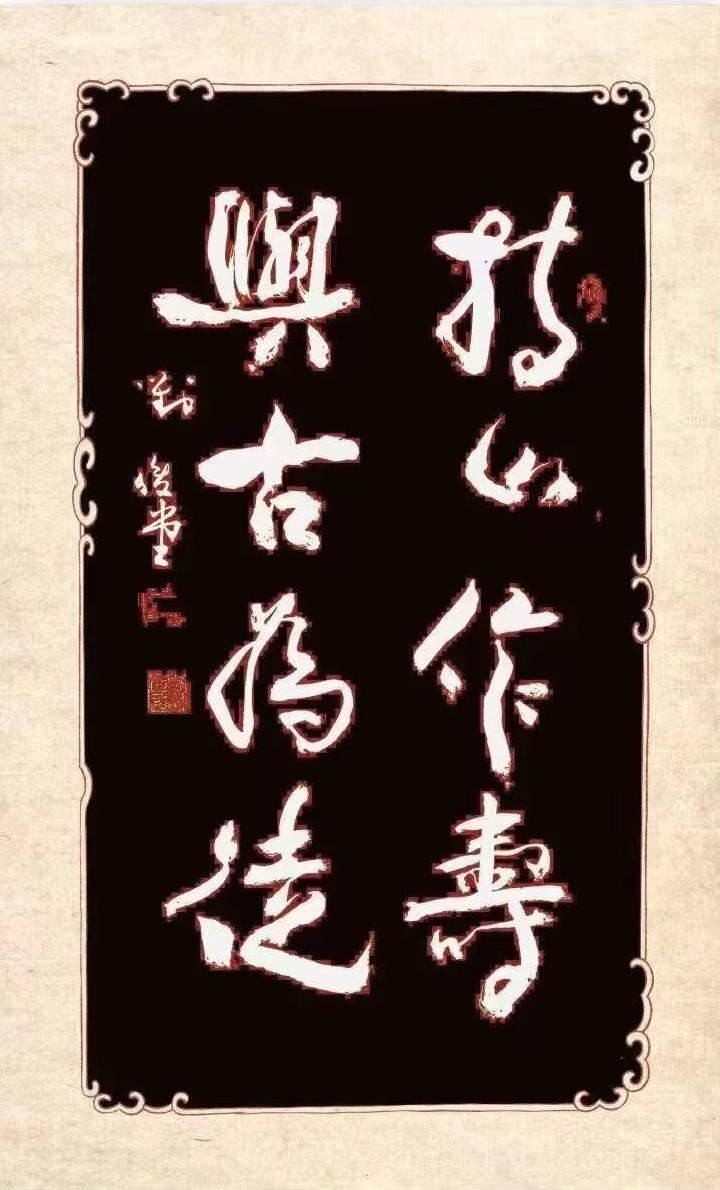 持山作壽
與古為徒